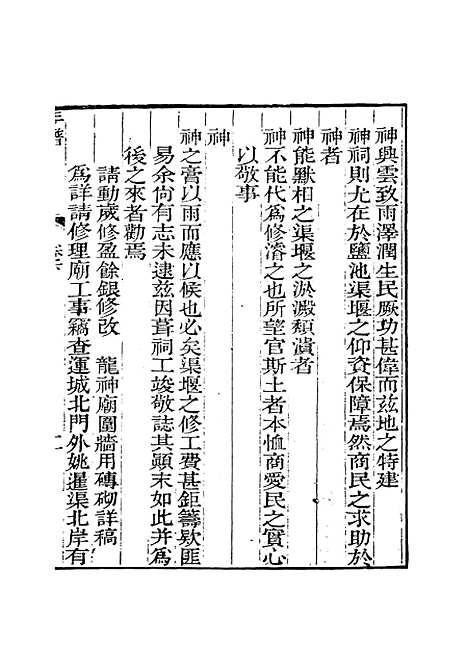 神興雲致雨澤潤生民厥功甚偉而茲地之特建
神祠則尤在於鹽池渠堰之仰資保障焉然商民之求助於
神者
神能默相之渠堰之淤澱頹潰者
神不能代為修濬之也所望官斯土者本恤商愛民之實心
以敬事
神
神之膏以雨而應以候也必矣渠堰之修工費甚鉅籌欵匪
易余尚有志未逮茲因葺祠工竣敬誌其顛末如此并為
後之來者勸焉
請動歲修盈餘銀修改　龍神廟圍牆用磚砌詳稿
為詳請修理廟工事竊查運城北門外姚暹渠北岸有